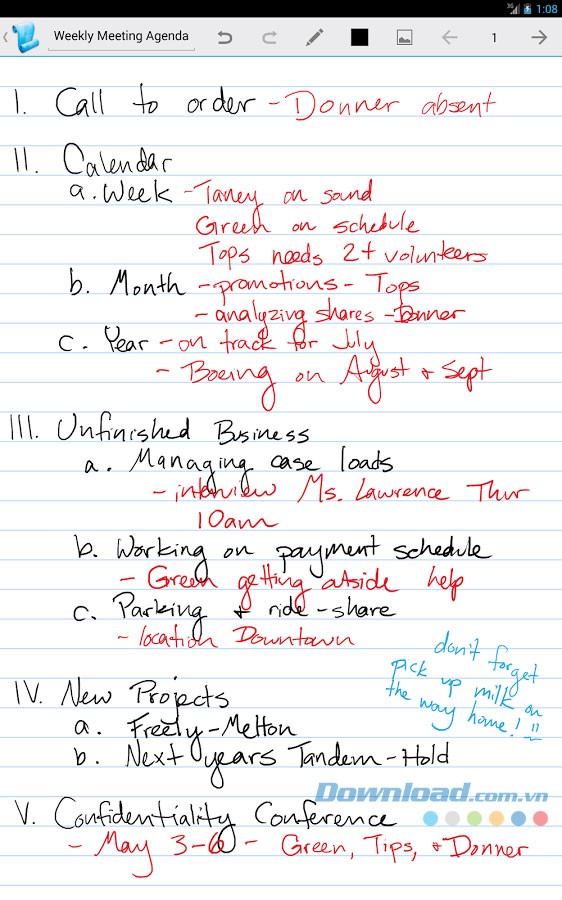 3G 1:08
Weekly Meeting Agenda 1
I. Call to order - Donner absent
II. Calendar
a. Week - Taney on sound
Green on schedule
Tops needs 2+ volunteers
b. Month - promotions - Tops
- analyzing shares - Donner
c. Year - on track for July
- Boeing on August + Sept
III. Unfinished Business
a. Managing case loads
- interview Ms. Lawrence Thur
10am
b. Working on payment schedule
- Green getting outside help
c. Parking + ride-share
- location Downtown
don't forget
pick up milk on
the way home! !!
IV. New Projects
a. Freely-Melton
b. Next years Tandem-Hold
Download.com.vn
V. Confidentiality Conference
- May 3-6 - Green, Tips, + Donner